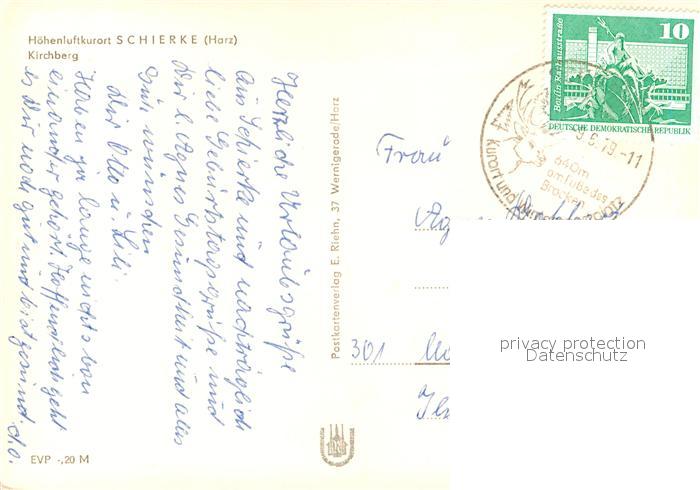 Höhenluftkurort SCHIERKE (Harz)
Kirchberg
Herzliche Urlaubsgrüße
aus Schierke und nachträglich
liebe Geburtstagsgrüße und
Dir l. Agnes Gesundheit und alles
Gute wünschen
Dir Otto u. Lili.
Haben ja lange nichts von
einander gehört. Hoffentlich geht
es Dir noch gut und bist gesund. d.o.
EVP -,20 M
Postkartenverlag E. Riehn, 37 Wernigerode/Harz
Berlin Rathausstraße
10
DEUTSCHE DEMOKRATISCHE REPUBLIK
79.-11
640m
am Fuße des
Brocken
Kurort und
Frau
301
privacy protection
Datenschutz